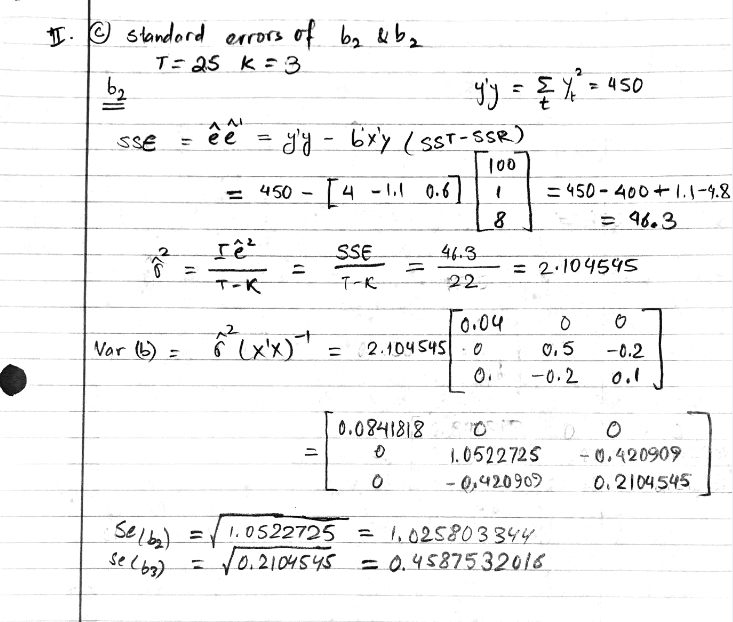 II. (c) standard errors of b₂ & b₂
T = 25 K = 3
b₂
y'y = Σₜ yₜ² = 450
SSE = ê ê' = y'y - b'x'y (SST-SSR)
= 450 - [4 -1.1 0.6] [100 1 8] = 450 - 400 + 1.1 - 4.8
= 46.3
σ̂² = Σê² / T-K = SSE / T-K = 46.3 / 22 = 2.104545
Var (b) = σ̂² (x'x)⁻¹ = 2.104545 [0.04 0 0
0 0.5 -0.2
0. -0.2 0.1]
[0.0841818 0 0
= 0 1.0522725 -0.420909
0 -0.420909 0.2104545]
Se(b₂) = √1.0522725 = 1.025803344
se(b₃) = √0.2104545 = 0.4587532016